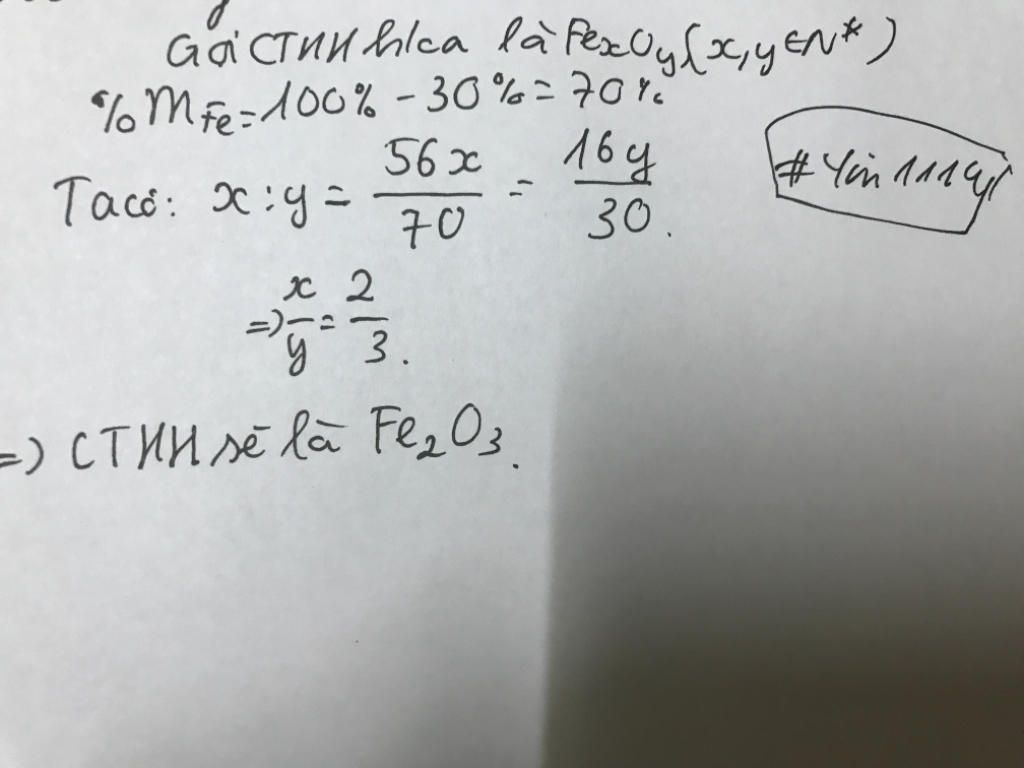 Gọi CTHH h/c a là FexOy (x, y ∈ N*)
%mFe = 100% - 30% = 70%
Ta có: x : y = 56x/70 = 16y/30.
#Yin111
=> x/y = 2/3.
=> CTHH sẽ là Fe2O3.